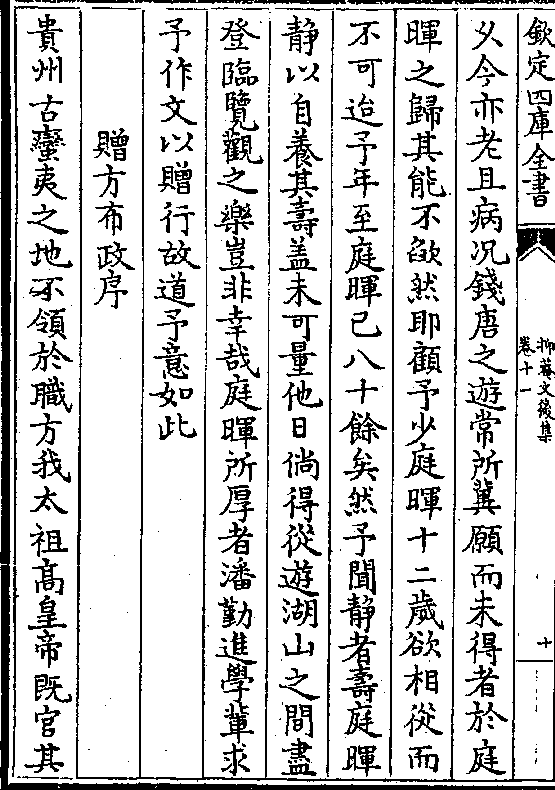 欽定四庫全書
抑菴文後集
卷十一
十
乆今亦老且病况錢唐之遊常所冀願而未得者於庭
暉之歸其能不歉然耶顧予少庭暉十二歲欲相從而
不可迨予年至庭暉已八十餘矣然予聞静者壽庭暉
静以自養其壽盖未可量他日倘得從遊湖山之間盡
登臨覽觀之樂豈非幸哉庭暉所厚者潘勤進學輩求
予作文以贈行故道予意如此
贈方布政序
貴州古蠻夷之地不領於職方我太祖髙皇帝既官其